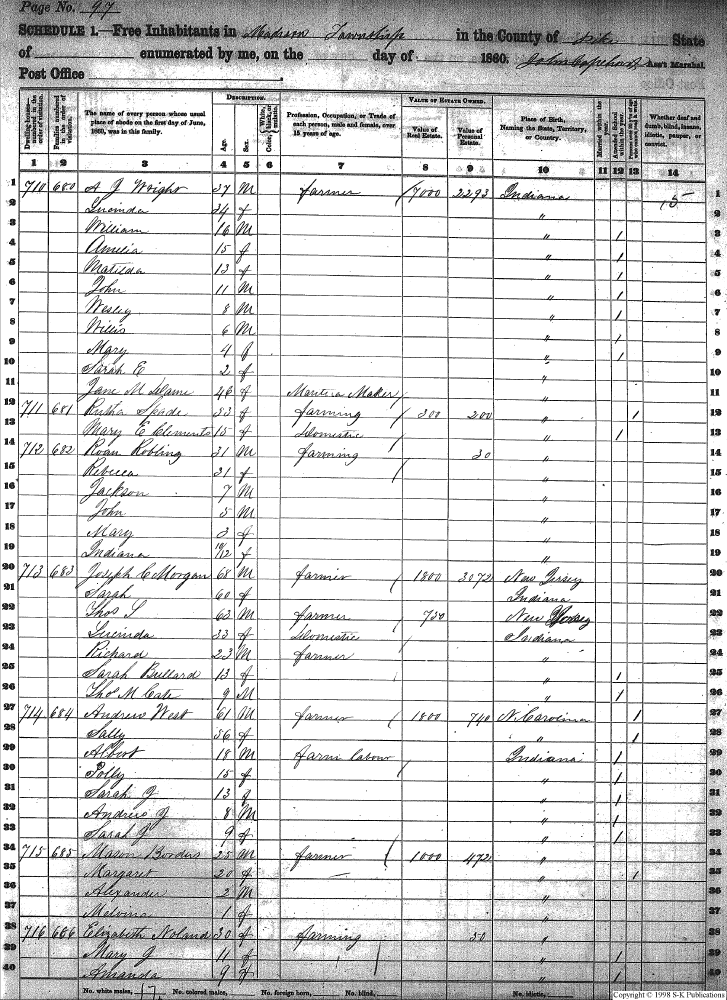 Page No. 97
SCHEDULE 1.—Free Inhabitants in Madison Township in the County of Pike State
of enumerated by me, on the day of 1860. John Capehart Ass't Marshal.
Post Office
DESCRIPTION. VALUE OF ESTATE OWNED.
Dwelling-houses—numbered in the order of visitation. Families numbered in the order of visitation. The name of every person whose usual place of abode on the first day of June, 1860, was in this family. Age. Sex. Color, {White, black, or mulatto. Profession, Occupation, or Trade of each person, male and female, over 15 years of age. Value of Real Estate. Value of Personal Estate. Place of Birth, Naming the State, Territory, or Country. Married within the year. Attended School within the year. Whether deaf and dumb, blind, insane, idiotic, pauper, or convict.
1 2 3 4 5 6 7 8 9 10 11 12 13 14
1 710 680 A J Wright 37 M farmer / 7000 2293 Indiana 1
2 Lucinda 34 f " 15 2
3 William 16 M " / 3
4 Amelia 15 f " / 4
5 Matilda 13 f " / 5
6 John 11 M " / 6
7 Wesley 8 M " / 7
8 Willis 6 M " / 8
9 Mary 4 f " / 9
10 Sarah E 2 f " 10
11 Jane M 46 f Mantua Maker / " 11
12 711 681 Rutha Spade 53 f farming / 200 200 " / 12
13 Mary E Clements 15 f Domestic " / 13
14 712 682 Roan Robling 31 M farming / 30 " 14
15 Rebecca 31 f " 15
16 Jackson 7 M " 16
17 John 5 M " 17
18 Mary 3 f " 18
19 Indiana 10/12 f " 19
20 713 683 Joseph C Morgan 68 M farmer / 1800 3072 New Jersey 20
21 Sarah 60 f Indiana 21
22 Thos S 63 M farmer / 750 New Jersey 22
23 Lucinda 33 f Domestic / Indiana 23
24 Richard 23 M farmer " 24
25 Sarah Bullard 13 f " / 25
26 Thos M Cate 9 M " / 26
27 714 684 Andrew West 61 M farmer / 1800 740 N. Carolina / 27
28 Sally 56 f " / 28
29 Albert 18 M farm labour / Indiana / 29
30 Polly 15 f " / 30
31 Sarah J 13 f " / 31
32 Andrew J 8 M " / 32
33 Sarah J 9 f " / 33
34 715 685 Mason Borders 25 M farmer / 1000 472 " 34
35 Margaret 20 f " / 35
36 Alexander 2 M " 36
37 Melvina 1 f " 37
38 716 686 Elizabeth Noland 30 f farming 50 " 38
39 Mary J 11 f " / 39
40 Amanda 9 f " / 40
No. white males, 17 No. colored males, No. foreign born, No. blind, No. idiotic,
Copyright © 1998 S-K Publications